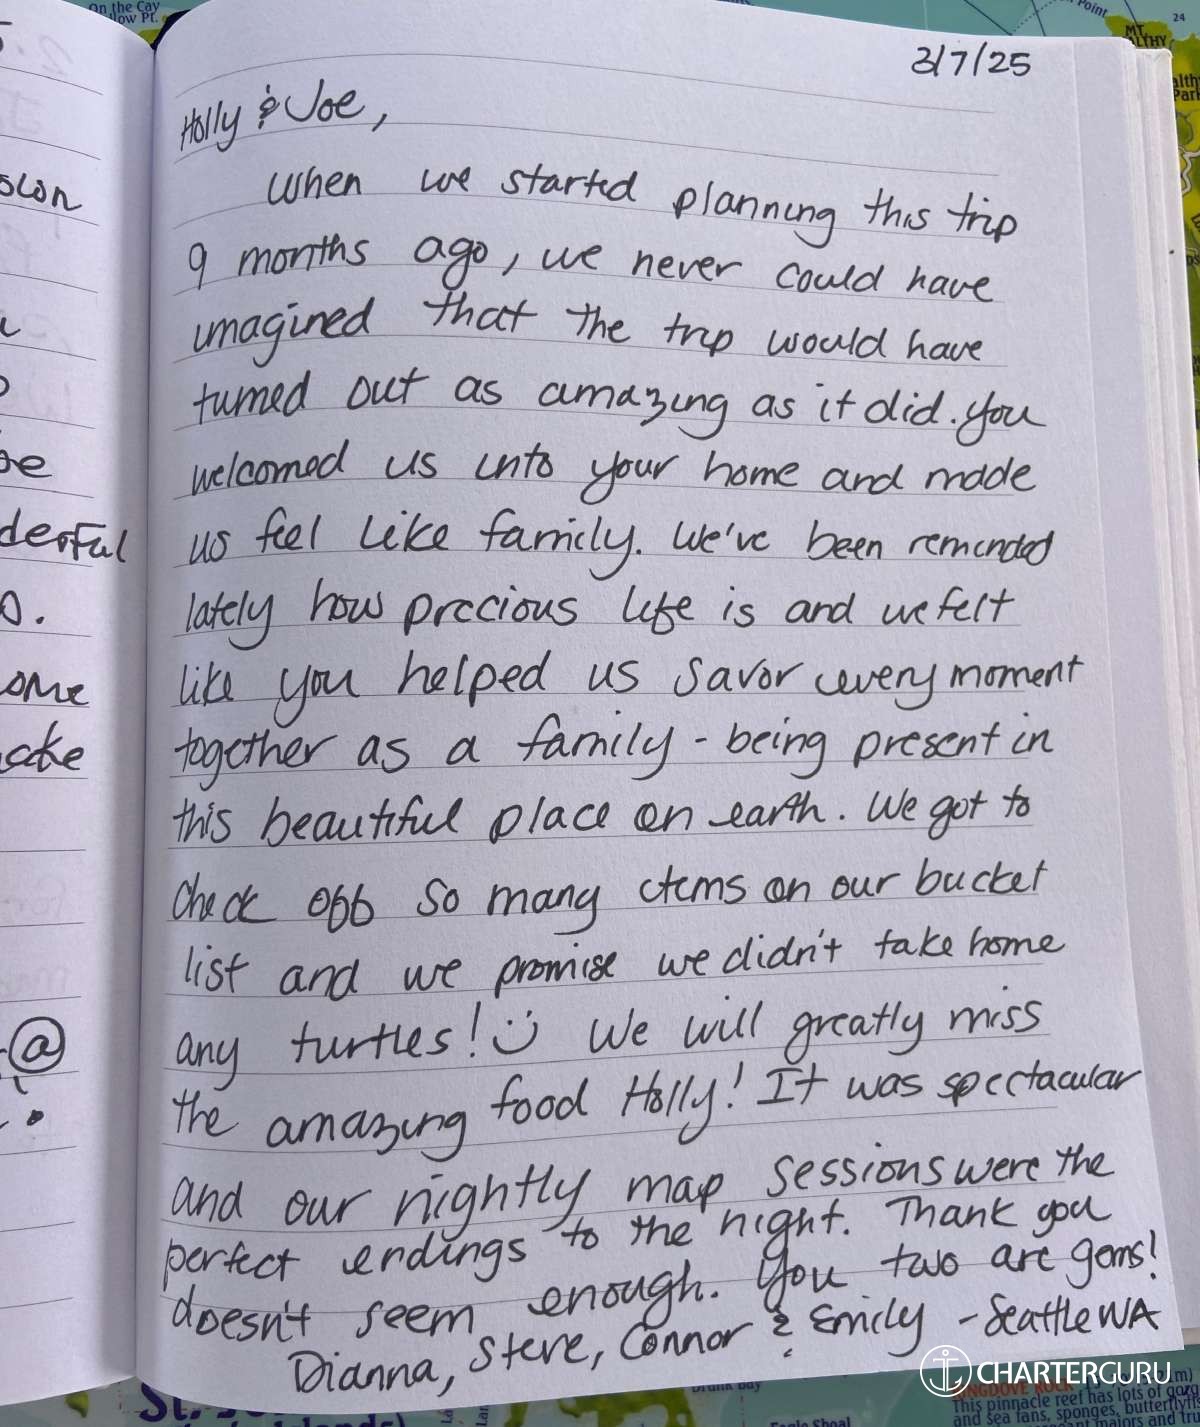 3/7/25
Holly & Joe,
When we started planning this trip
9 months ago, we never could have
imagined that the trip would have
turned out as amazing as it did. You
welcomed us into your home and made
us feel like family. We've been reminded
lately how precious life is and we felt
like you helped us savor every moment
together as a family - being present in
this beautiful place on earth. We got to
check off so many items on our bucket
list and we promise we didn't take home
any turtles! :) We will greatly miss
the amazing food Holly! It was spectacular
and our nightly map sessions were the
perfect endings to the night. Thank you
doesn't seem enough. You two are gems!
Dianna, Steve, Connor & Emily - Seattle WA
CHARTERGURU
On the Cay
llow Pt.
Point
24
MT
ALTHY
derful
ome
@
St.
This pinnacle reef has lots of gorg
and sea fans, sponges, butterfly
Eagle Shoal